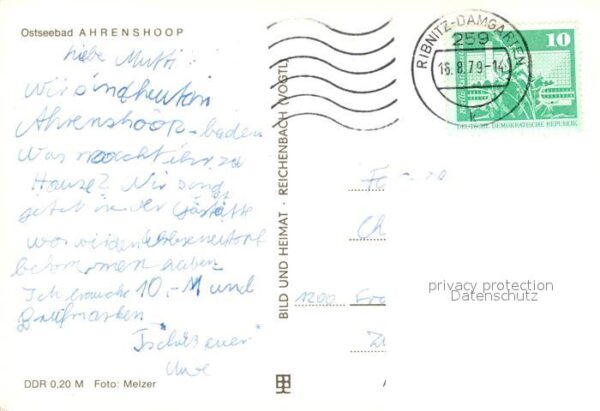 Ostseebad AHRENSHOOP
liebe Mutti!
Wir sind heut in
Ahrenshoop-baden
Was macht ihr zu
Hause? Wir sind
jetzt in der Gaststätte
wo wir den
bekommen haben.
Ich brauche 10,-M und
Briefmarken.
Tschüß euer
Uwe
DDR 0,20 M Foto: Melzer
BILD UND HEIMAT · REICHENBACH (VOGTL)
RIBNITZ-DAMGARTEN
259
16.8.79-14
k
10
DEUTSCHE DEMOKRATISCHE REPUBLIK
1200 Fra
privacy protection
Datenschutz